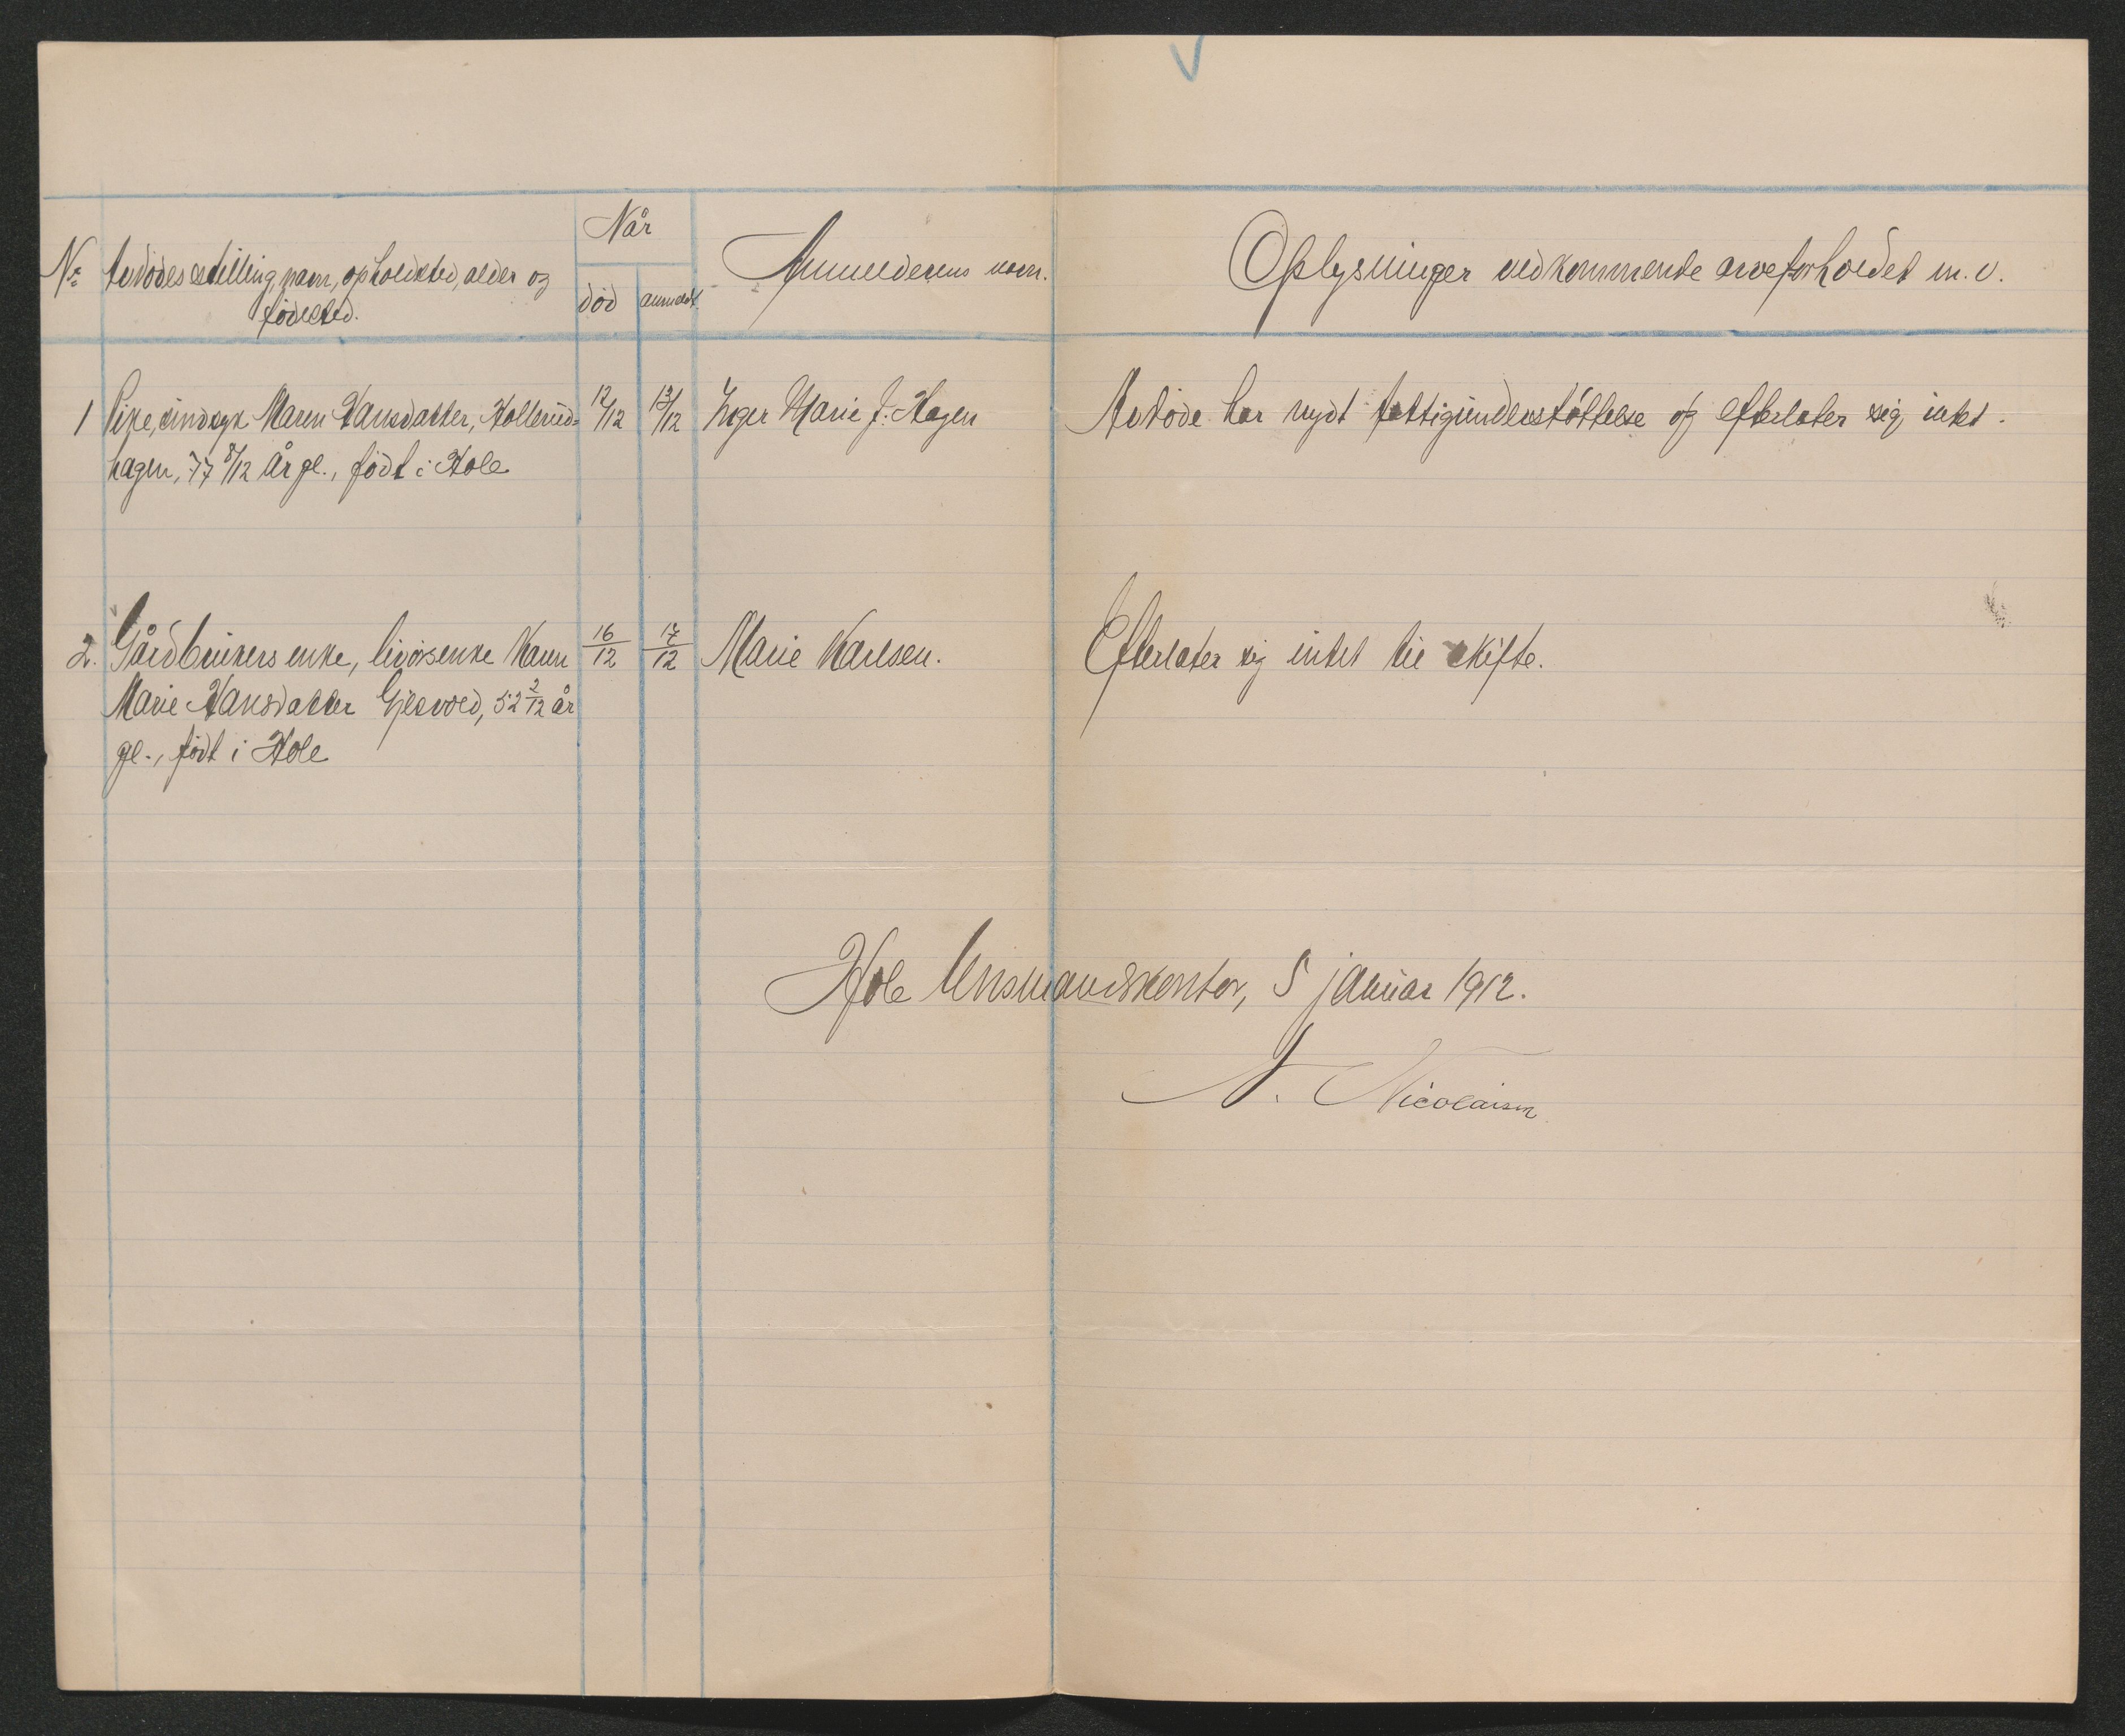 Når
No Avdödes stilling, navn, opholdsted, alder og
fødested.
død
anmeldt.
Anmelderens navn.
Oplysninger vedkommende arveforholdet m. v.
1 Pike, sindsyk Maren Hansdatter, Hollerud=
hagen, 77 8/12 år gl., født i Hole
12/12
13/12
Inger Marie J. Hagen
Avdöde har nydt fattigunderstöttelse og efterlater sig intet.
2. Gårdbrukers enke, livörsenke Karen
Marie Hansdatter Gjesvold, 52 2/12 år
gl., født i Hole
16/12
17/12
Marie Karlsen.
Efterlater sig intet til skifte.
Hole lensmandskontor, 5 januar 1912.
N. Nicolaisen